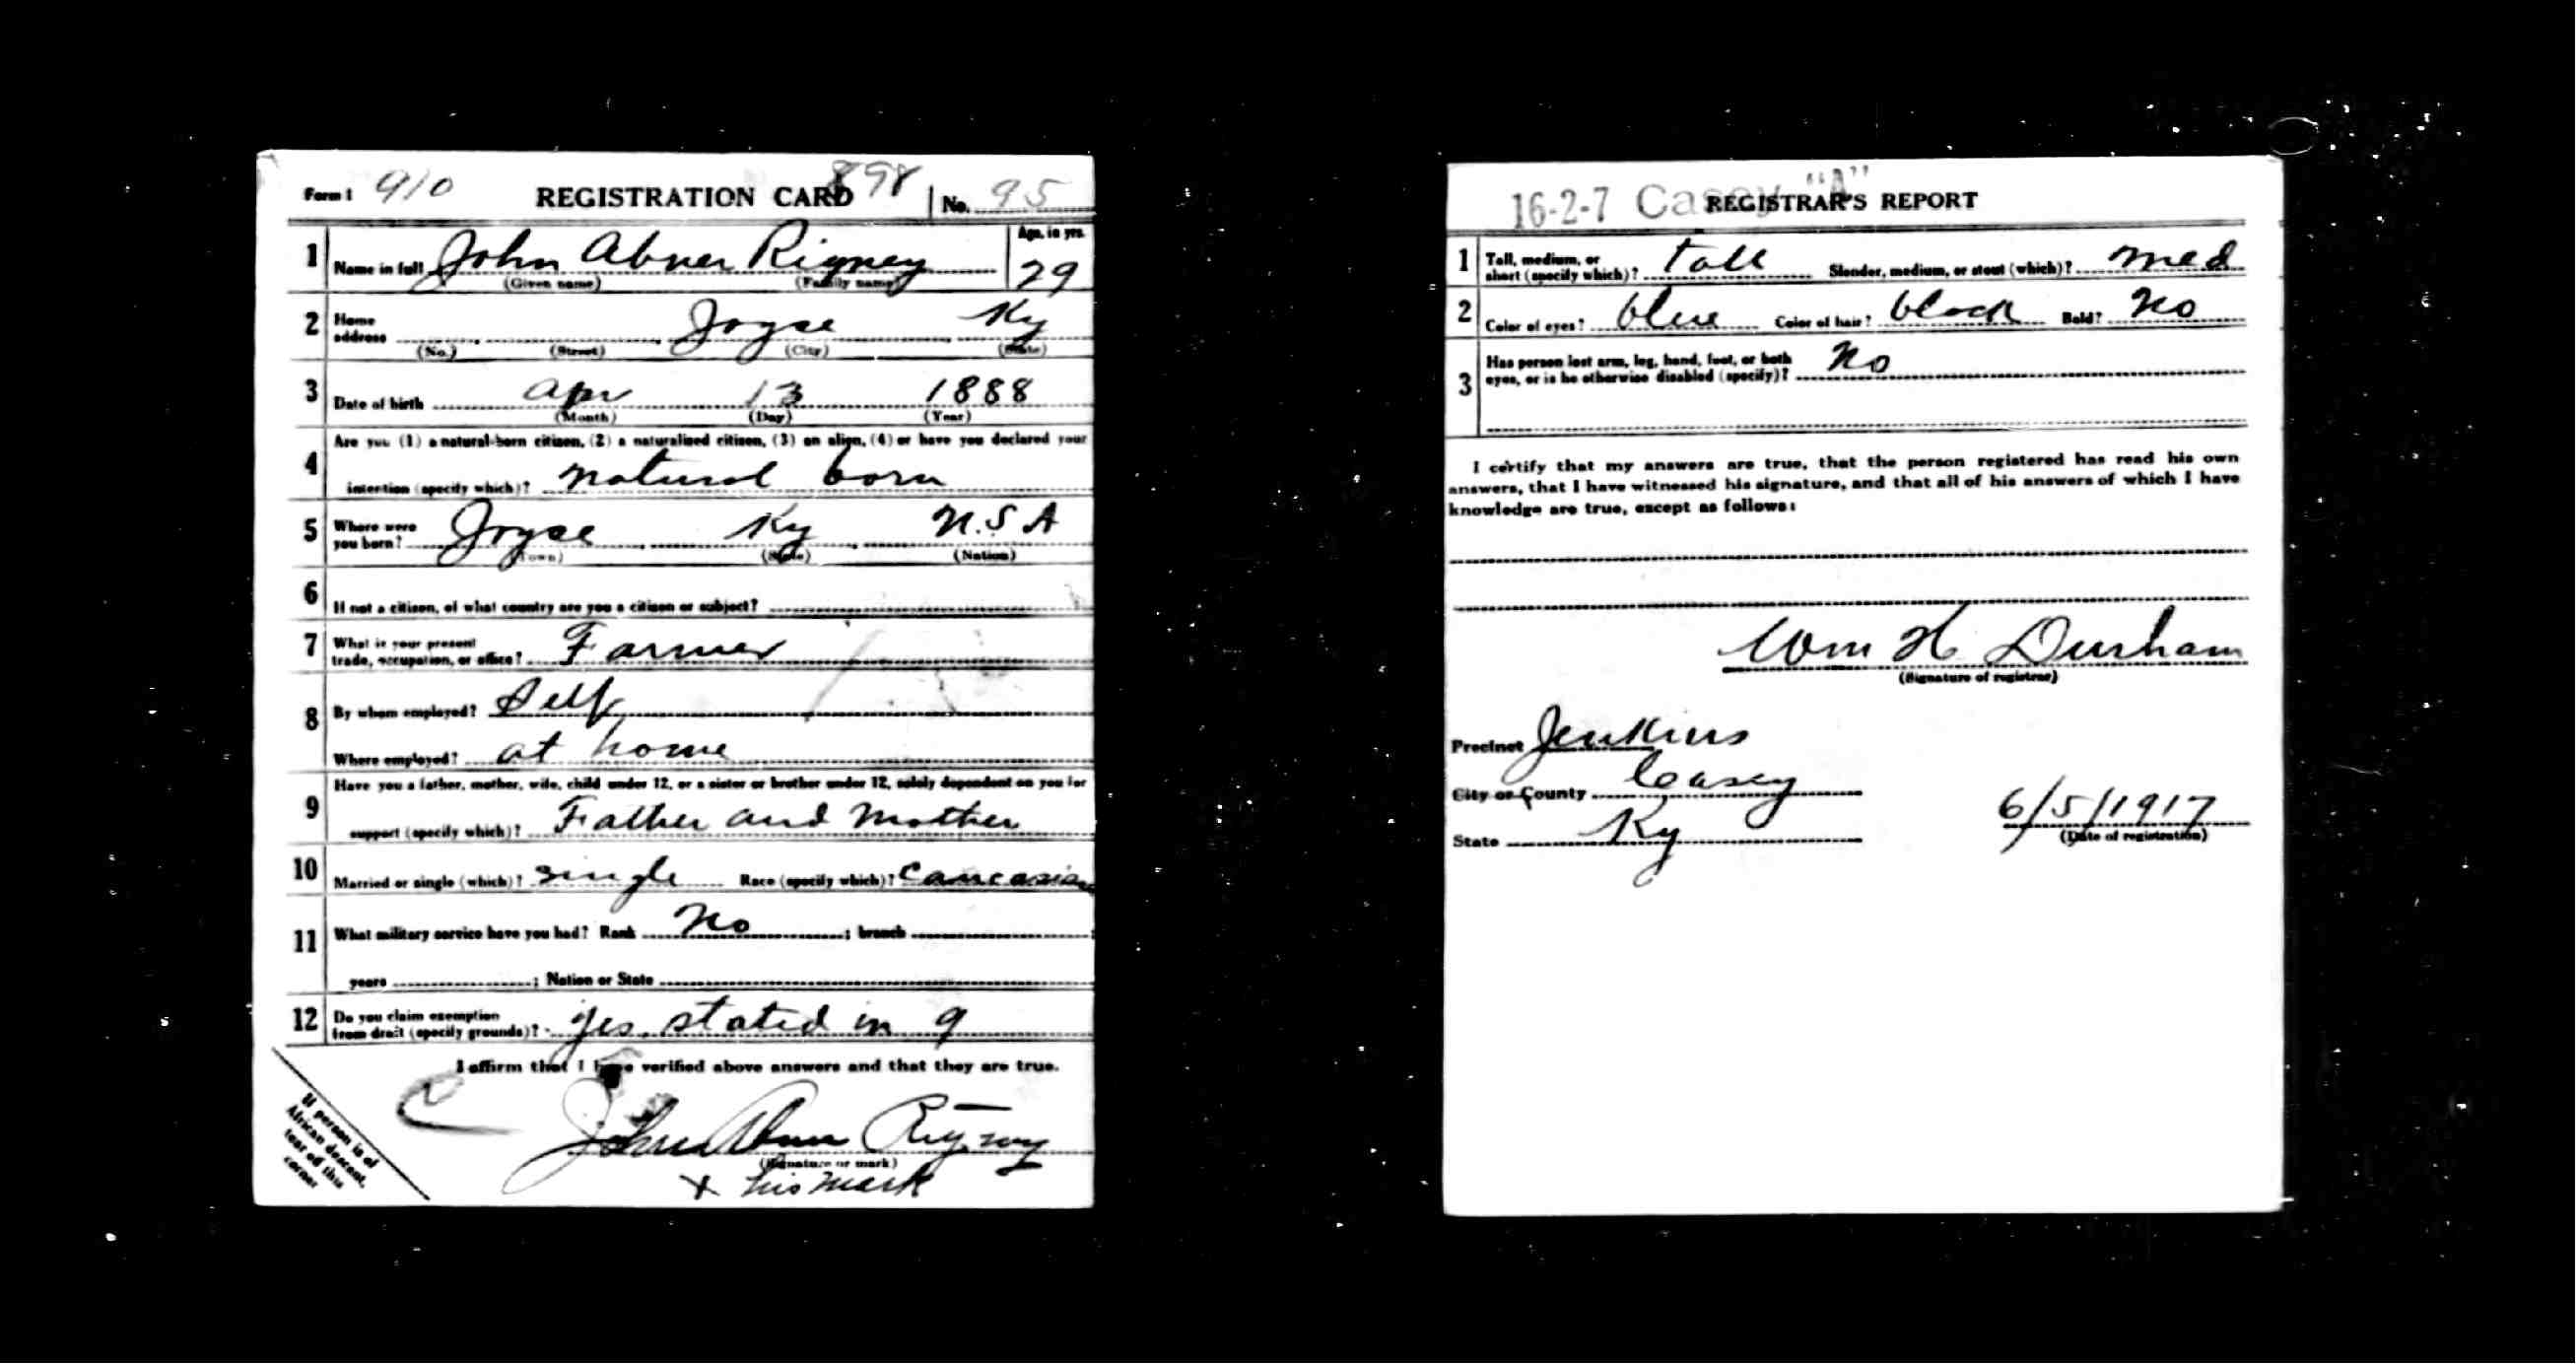 Form 1 910 REGISTRATION CARD 898 No. 95
1 Name in full John Abner Rigney Age, in yrs. 29
(Given name) (Family name)
2 Home address Joyse Ky
(No.) (Street) (City) (State)
3 Date of birth Apr 13 1888
(Month) (Day) (Year)
4 Are you (1) a natural-born citizen, (2) a naturalized citizen, (3) an alien, (4) or have you declared your
intention (specify which)? natural born
5 Where were you born? Joyse Ky U.S A
(Town) (State) (Nation)
6 If not a citizen, of what country are you a citizen or subject?
7 What is your present trade, occupation, or office? Farmer
8 By whom employed? Self
Where employed? at home
9 Have you a father, mother, wife, child under 12, or a sister or brother under 12, solely dependent on you for
support (specify which)? Father and Mother
10 Married or single (which)? single Race (specify which)? Caucasian
11 What military service have you had? Rank No ; branch
years ; Nation or State
12 Do you claim exemption from draft (specify grounds)? yes. stated in 9
I affirm that I have verified above answers and that they are true.
John Abner Rigney
(Signature or mark)
+ his mark
If person is of
African descent,
tear off this
corner
16-2-7 Casey "A"
REGISTRAR'S REPORT
1 Tall, medium, or short (specify which)? Tall Slender, medium, or stout (which)? med
2 Color of eyes? blue Color of hair? black Bald? No
3 Has person lost arm, leg, hand, foot, or both
eyes, or is he otherwise disabled (specify)? No
I certify that my answers are true, that the person registered has read his own
answers, that I have witnessed his signature, and that all of his answers of which I have
knowledge are true, except as follows:
Wm H Durham
(Signature of registrar)
Precinct Jenkins
City or County Casey
State Ky
6/5/1917
(Date of registration)